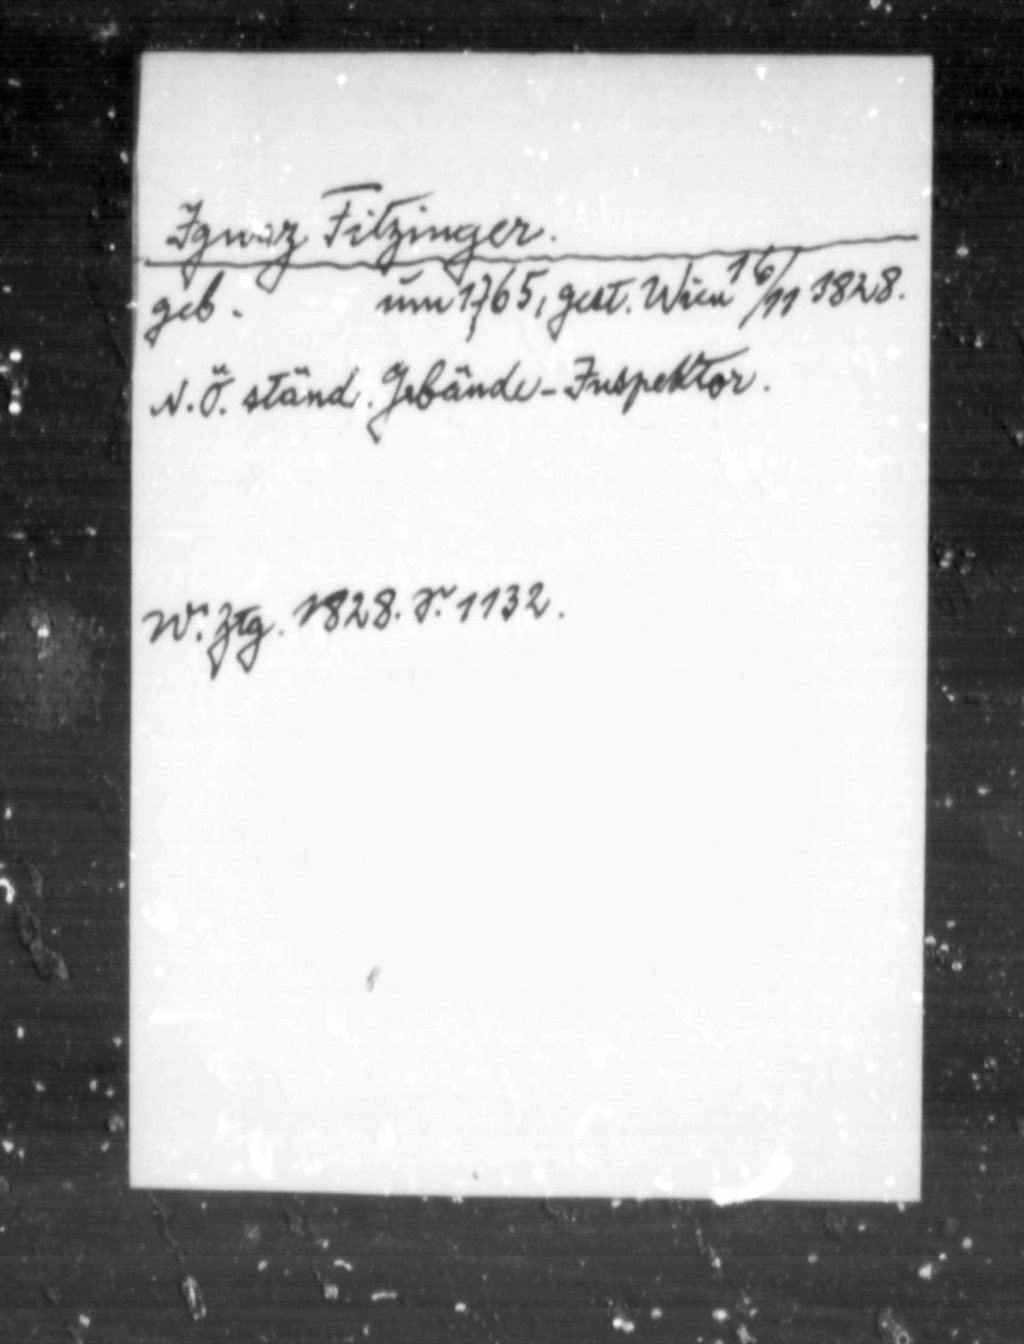 Ignaz Fitzinger.
geb. um 1765, gest. Wien 16/11 1828.
N.Ö. ständ. Gebäude-Inspektor.
W. Ztg. 1828. S. 1132.